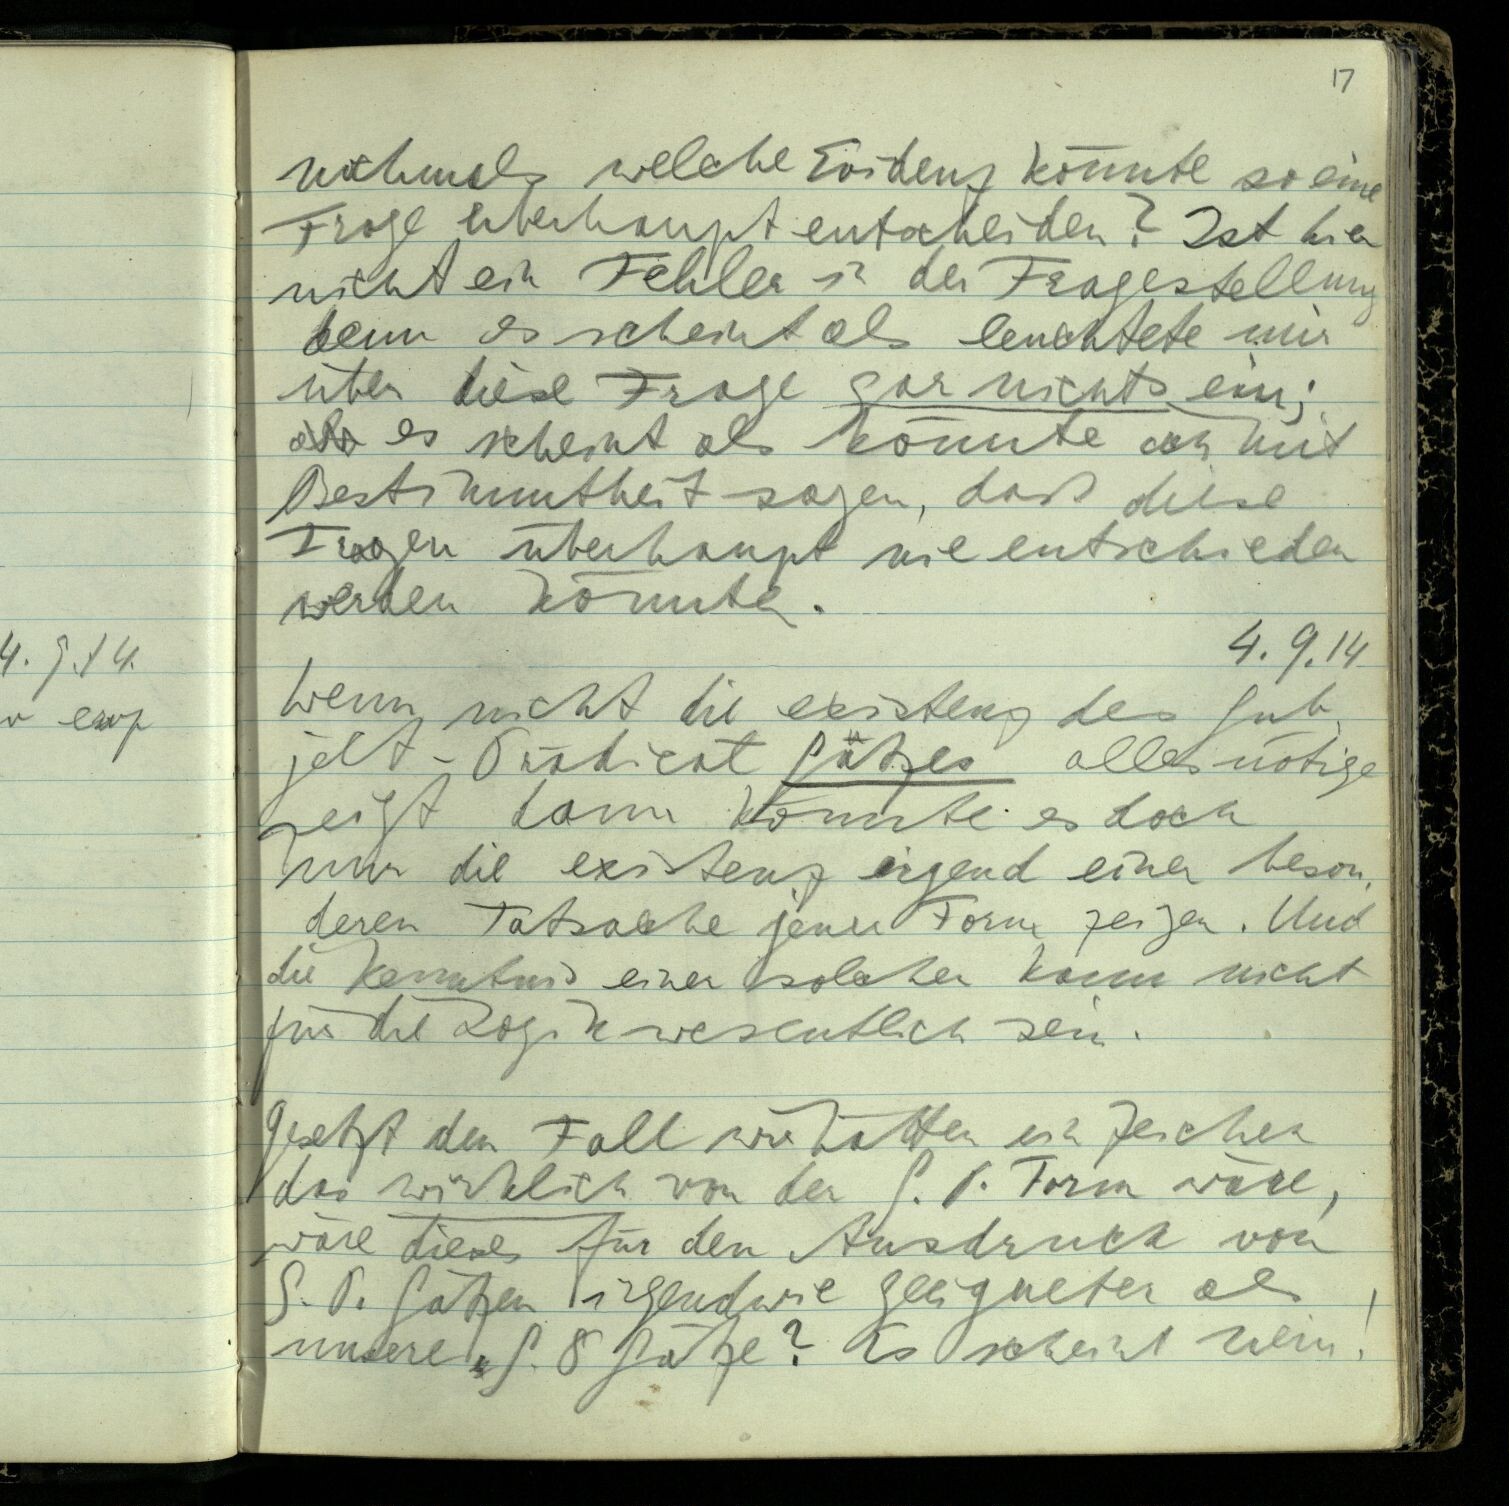 17
nochmals welche Evidenz könnte so eine
Frage überhaupt entscheiden? Ist hier
nicht ein Fehler in der Fragestellung
denn es scheint als leuchtete mir
über diese Frage gar nichts ein;
es scheint als könnte ich mit
Bestimmtheit sagen, daß diese
Fragen überhaupt nie entschieden
werden könnten.
4. 9. 14
4. 9. 14.
Wenn nicht die existenz des Sub
jekt-Prädicat Satzes alles nötige
zeigt dann könnte es doch
nur die existenz irgend einer beson
deren Tatsache jener Form zeigen. Und
die Kenntnis einer solchen kann nicht
für die Logik wesentlich sein.
Gesetzt den Fall wir hätten ein Zeichen
das wirklich von der S. P. Form wäre,
wäre dieses für den Ausdruck von
S. P. Sätzen irgendwie geeigneter als
unsere S. P Sätze? Es scheint nein!